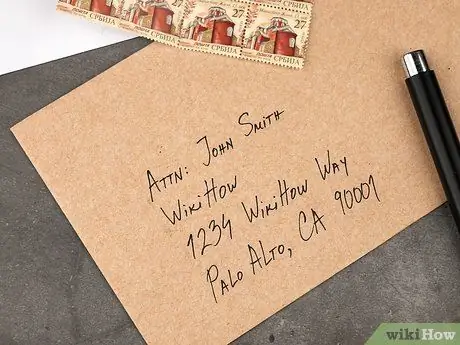 27 27
СРБИЈА СРБИЈА СРБИЈА СРБИЈА
ATTN: JOHN SMITH
WIKIHOW
1234 WIKIHOW WAY
PALO ALTO, CA 90001
wikiHow